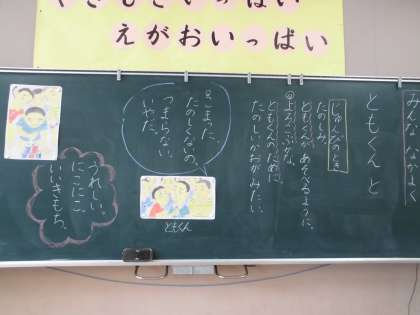 やさしさいっぱい
えがおいっぱい
みんななかよく
ともくんと
じゅんびのとき
たのしみ
ともくんがあそべるように。
よろこぶかな。
ともくんのために
たのしいかおがみたい。
こまった。
たのしくないの。
つまらない。
いやだ。
ともくん
うれしい。
にこにこ。
いいきもち。